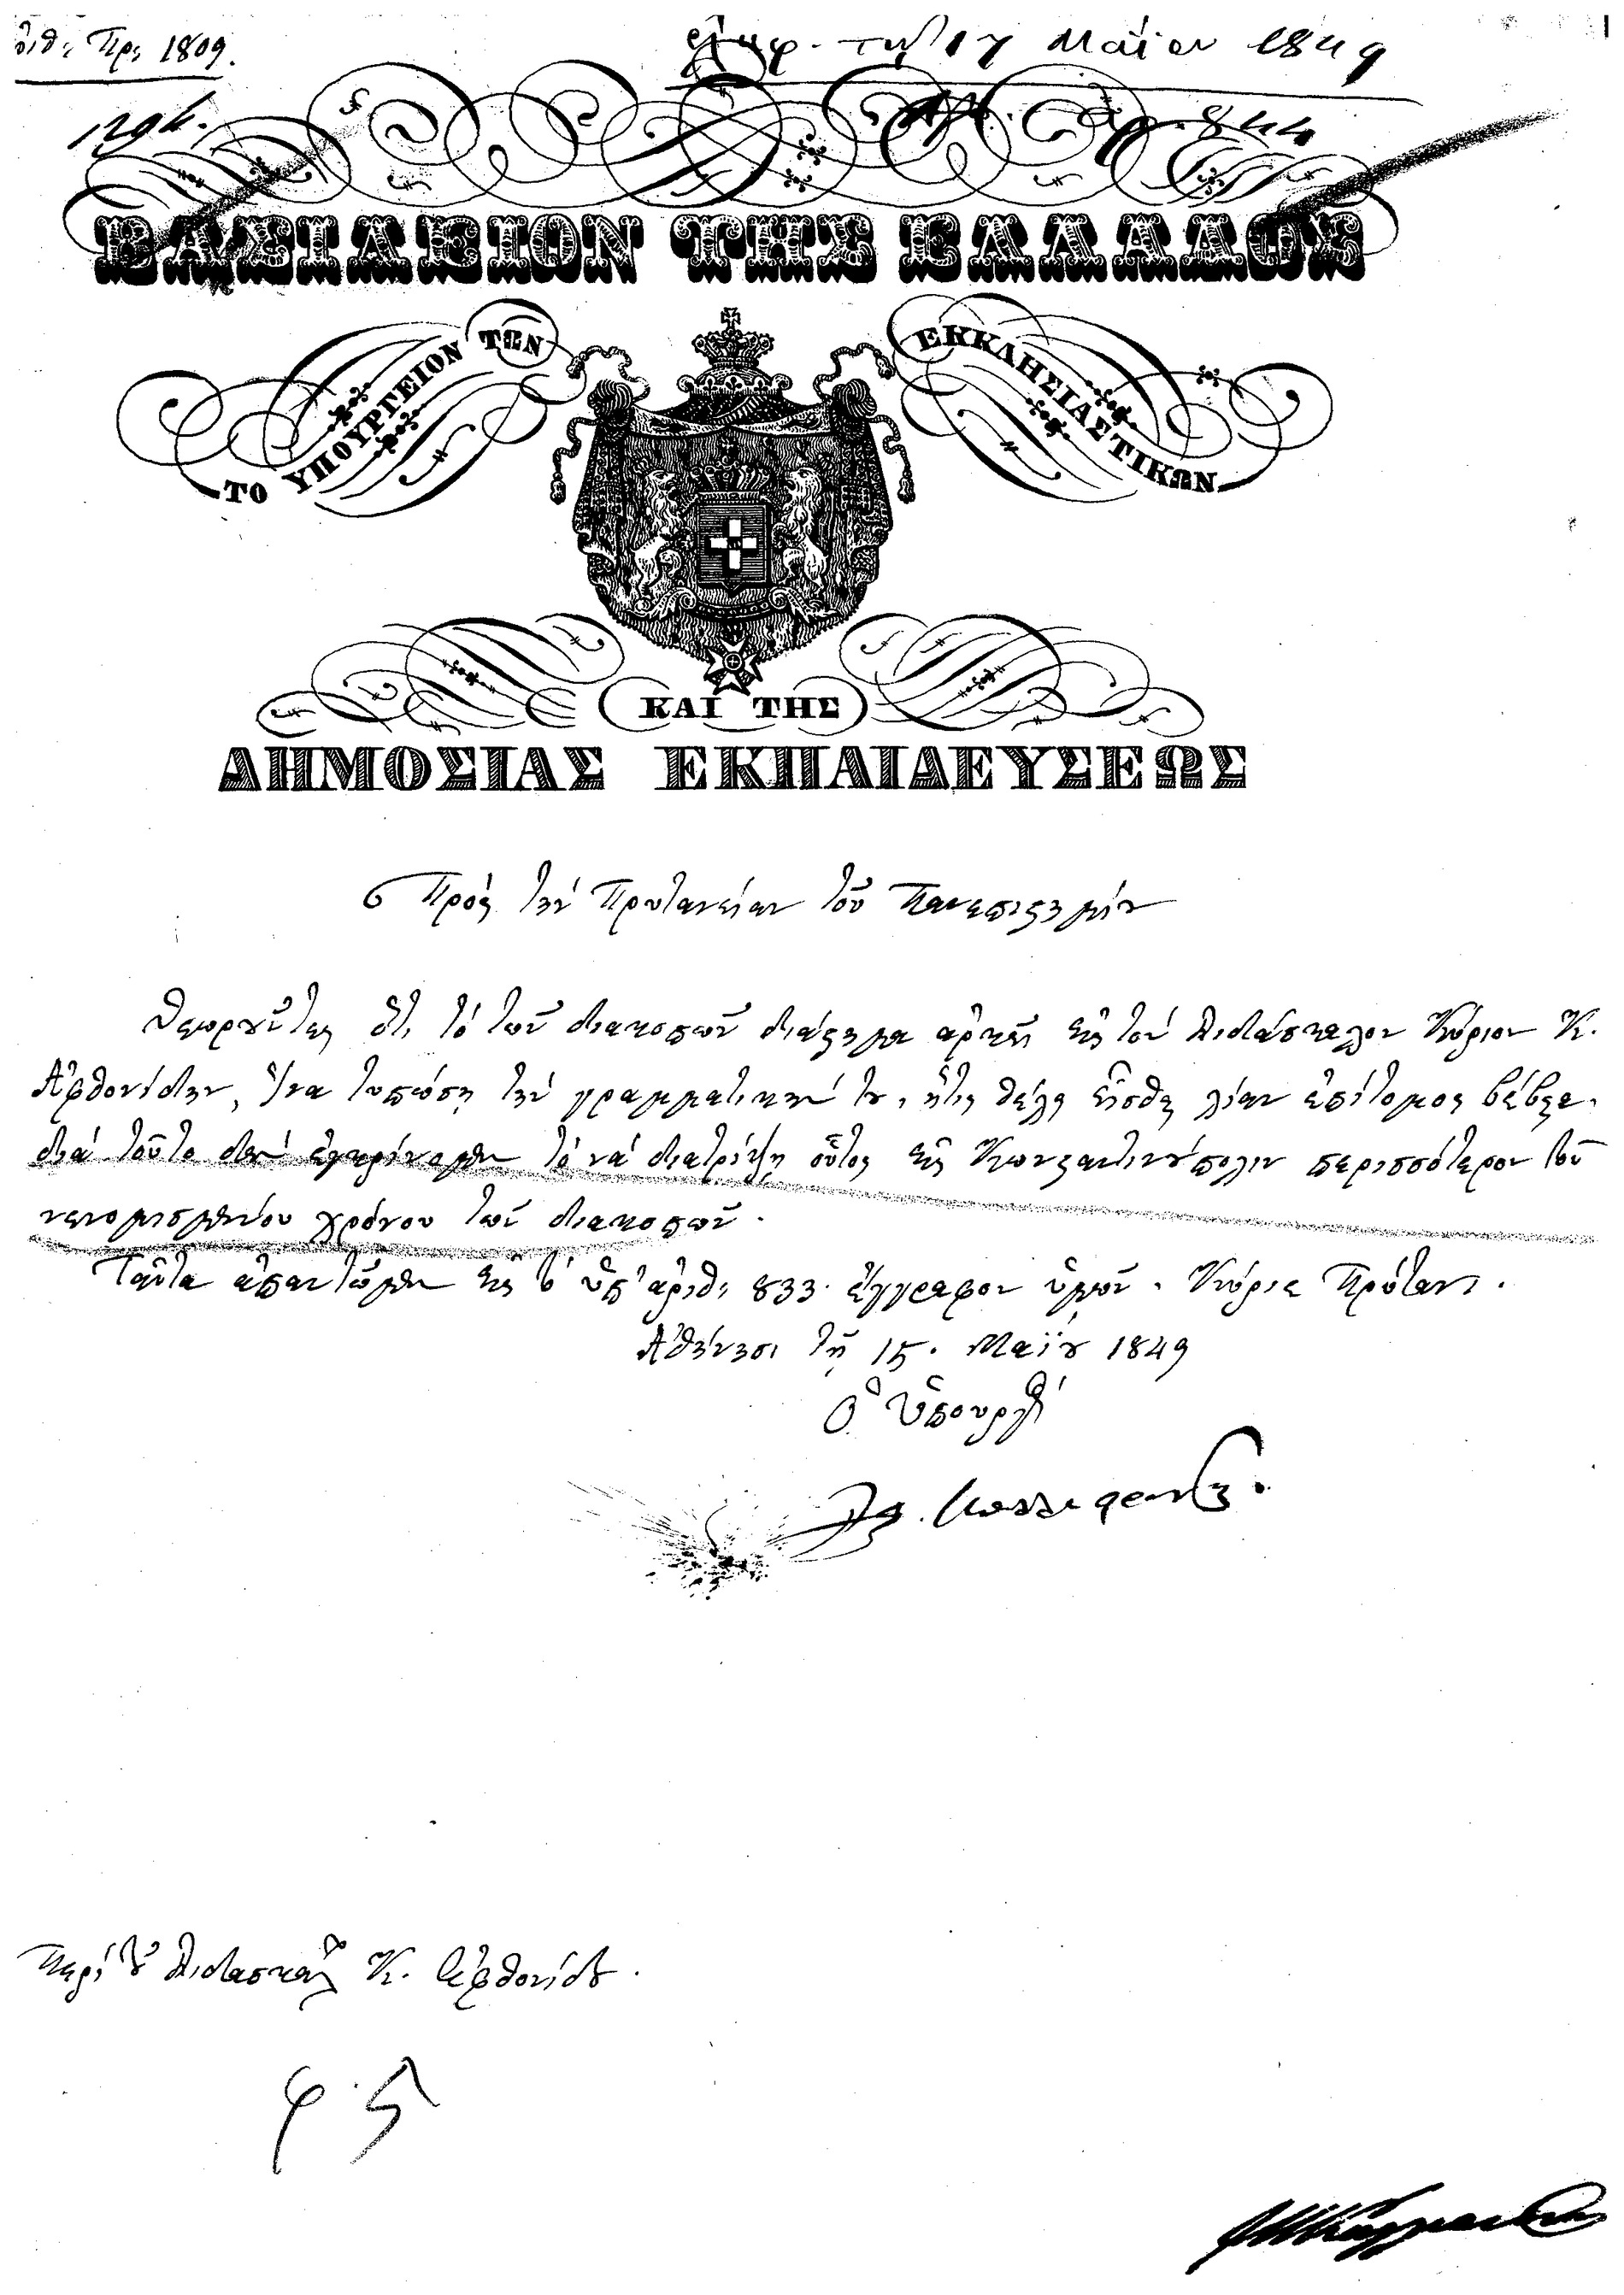 ἀριθ: Πρ: 1809.
τῇ 17 Μαΐου 1849
1294.
844
ΒΑΣΙΛΕΙΟΝ ΤΗΣ ΕΛΛΑΔΟΣ
ΤΟ ΥΠΟΥΡΓΕΙΟΝ ΤΩΝ ΕΚΚΛΗΣΙΑΣΤΙΚΩΝ
ΚΑΙ ΤΗΣ
ΔΗΜΟΣΙΑΣ ΕΚΠΑΙΔΕΥΣΕΩΣ
Πρὸς τὴν Πρυτανείαν τοῦ Πανεπιστημίου
Θεωροῦντες ὅτι τὸ τῶν διακοπῶν διάστημα ἀρκεῖ εἰς τὸν Διδάσκαλον Κύριον Κ.
Ἀφθονίδην, ἵνα τυπώσῃ τὴν γραμματικήν του, ἥτις θέλει εἶσθαι λίαν ἐπίτομος βέβαια.
διὰ τοῦτο δὲν ἐνεκρίναμεν τὸ νὰ διατρίψῃ οὗτος εἰς Κωνσταντινούπολιν περισσότερον τοῦ
νενομισμένου χρόνου τῶν διακοπῶν.
Ταῦτα ἀπαντῶμεν εἰς τὸ ὑπ' ἀριθ: 833. ἔγγραφον ὑμῶν. Κύριε Πρύτανι.
Ἀθήνησι τῇ 15. Μαΐου 1849
Ὁ Ὑπουργὸς
Περὶ τοῦ Διδασκάλ Κ. Ἀφθονίδου.